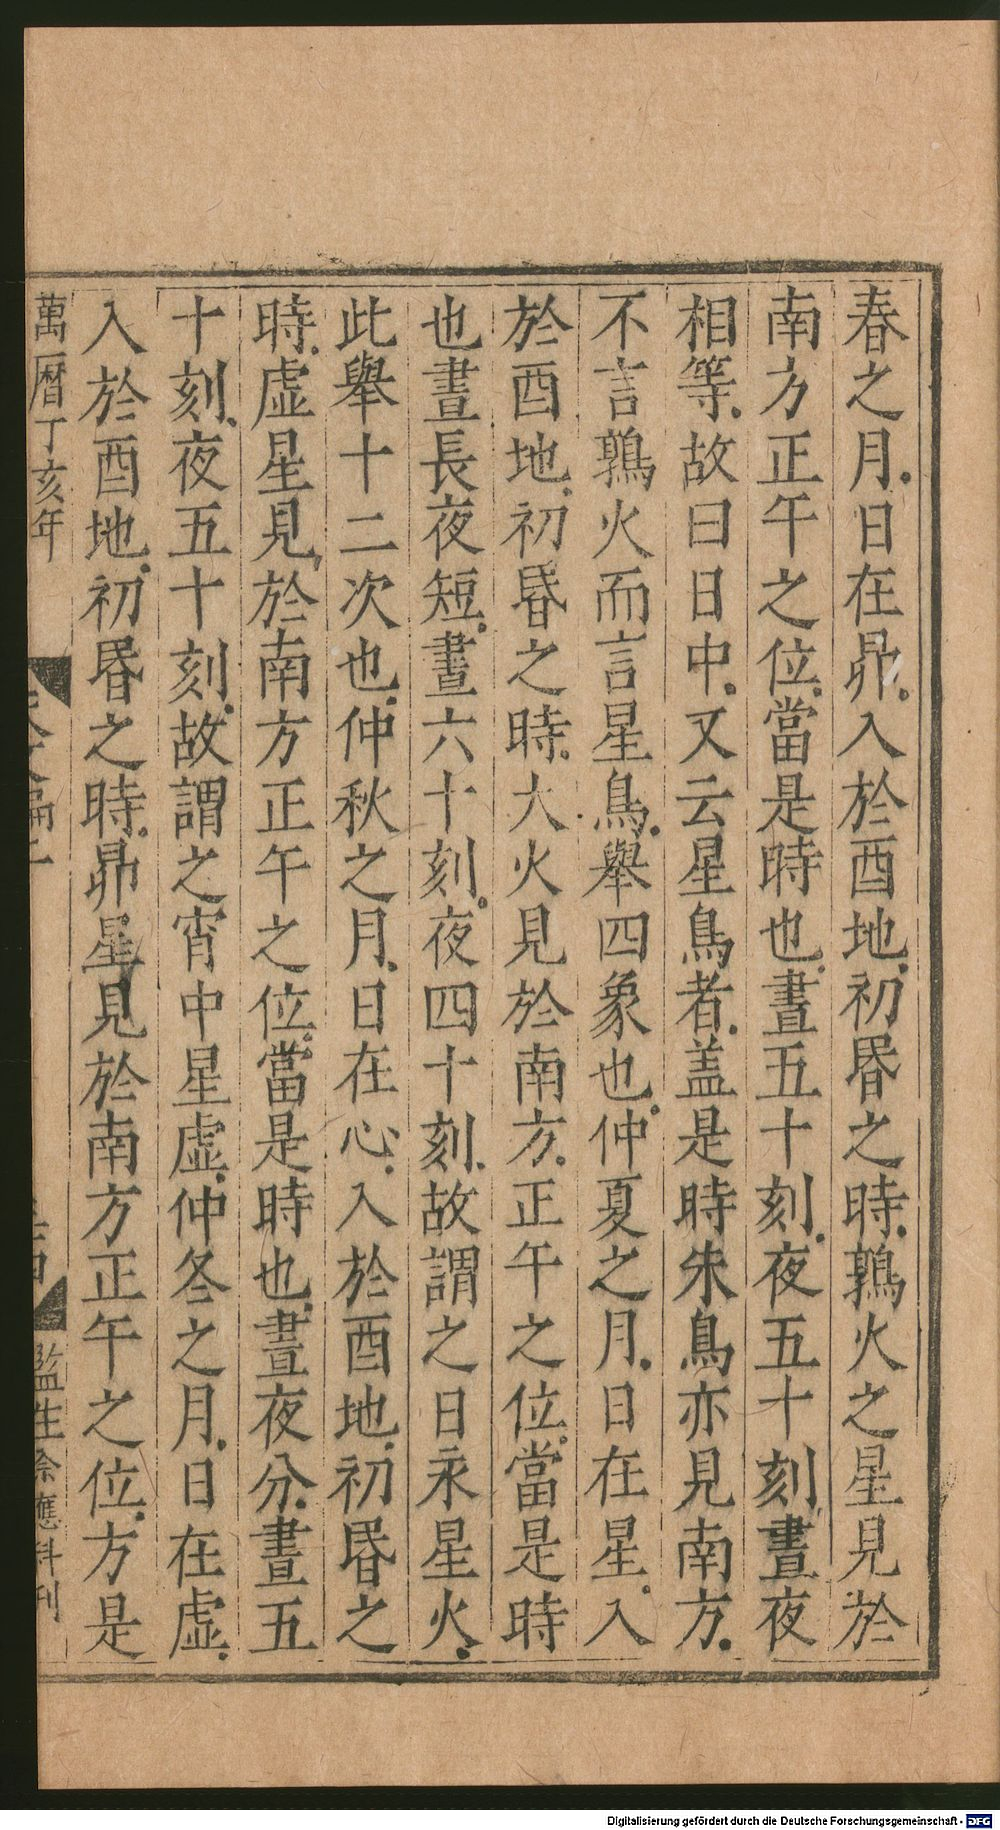 春之月.日在昴.入於酉地.初昬之時.鶉火之星見於
南方正午之位.當是時也.晝五十刻.夜五十刻.晝夜
相等.故曰日中.又云星鳥者.盖是時朱鳥亦見南方.
不言鶉火而言星鳥.舉四象也.仲夏之月.日在星.入
於酉地.初昬之時.大火見於南方.正午之位.當是時
也晝長夜短.晝六十刻.夜四十刻.故謂之日永星火.
此舉十二次也.仲秋之月.日在心.入於酉地.初昬之
時.虛星見.於南方正午之位.當是時也.晝夜分.晝五
十刻.夜五十刻.故謂之宵中星虛.仲冬之月.日在虛.
入於酉地.初昬之時.昴星見於南方正午之位.方是
萬曆丁亥年
監生余應科刊
Digitalisierung gefördert durch die Deutsche Forschungsgemeinschaft - DFG